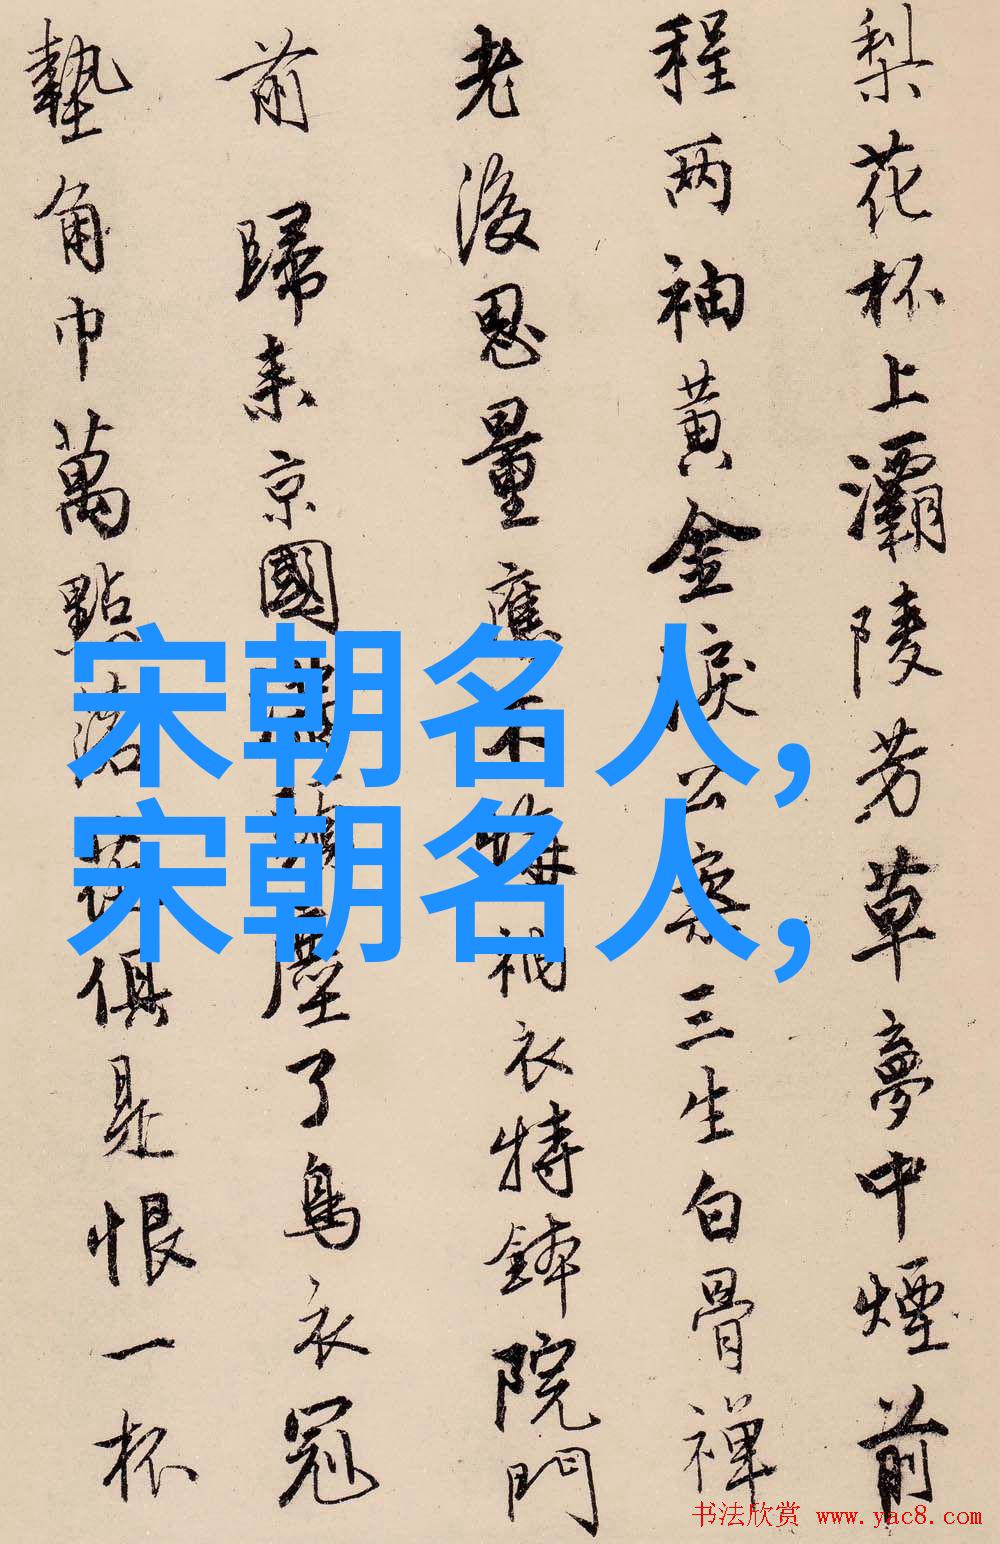 梨花杯上灞陵芳草夢中煙前
程两袖黄金淚公案三生白骨禅
老後思量應不悔衲衣持鉢院門
前 歸来京國塵了烏衣冠
墊角巾萬點落花俱是恨一杯
宋朝名人,
宋朝名人,
书法欣赏 www.yac8.com